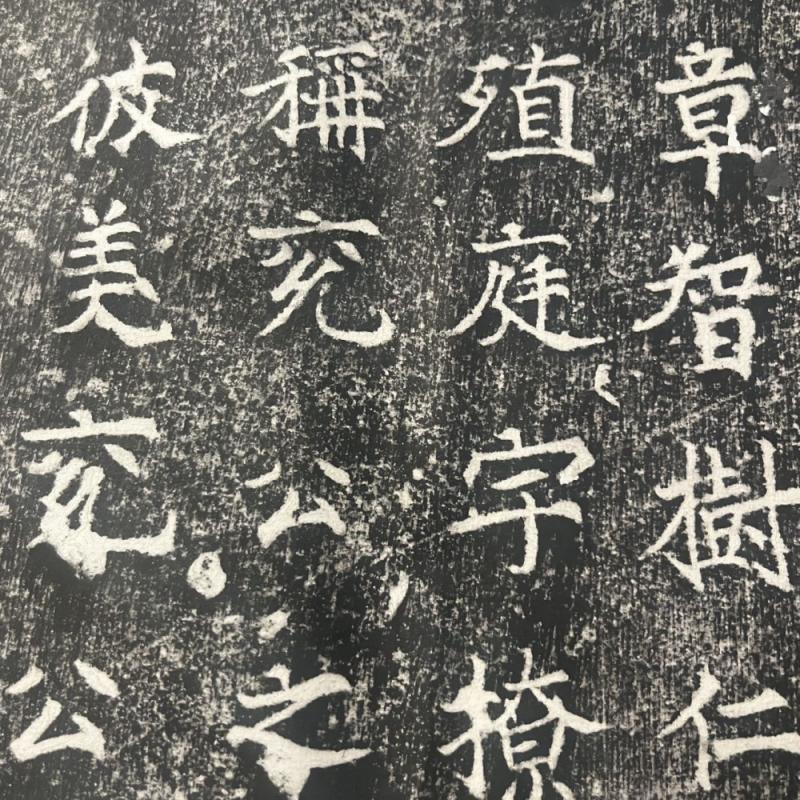 章智樹仁
殖庭宇撩
稱兖公之
彼美兖公